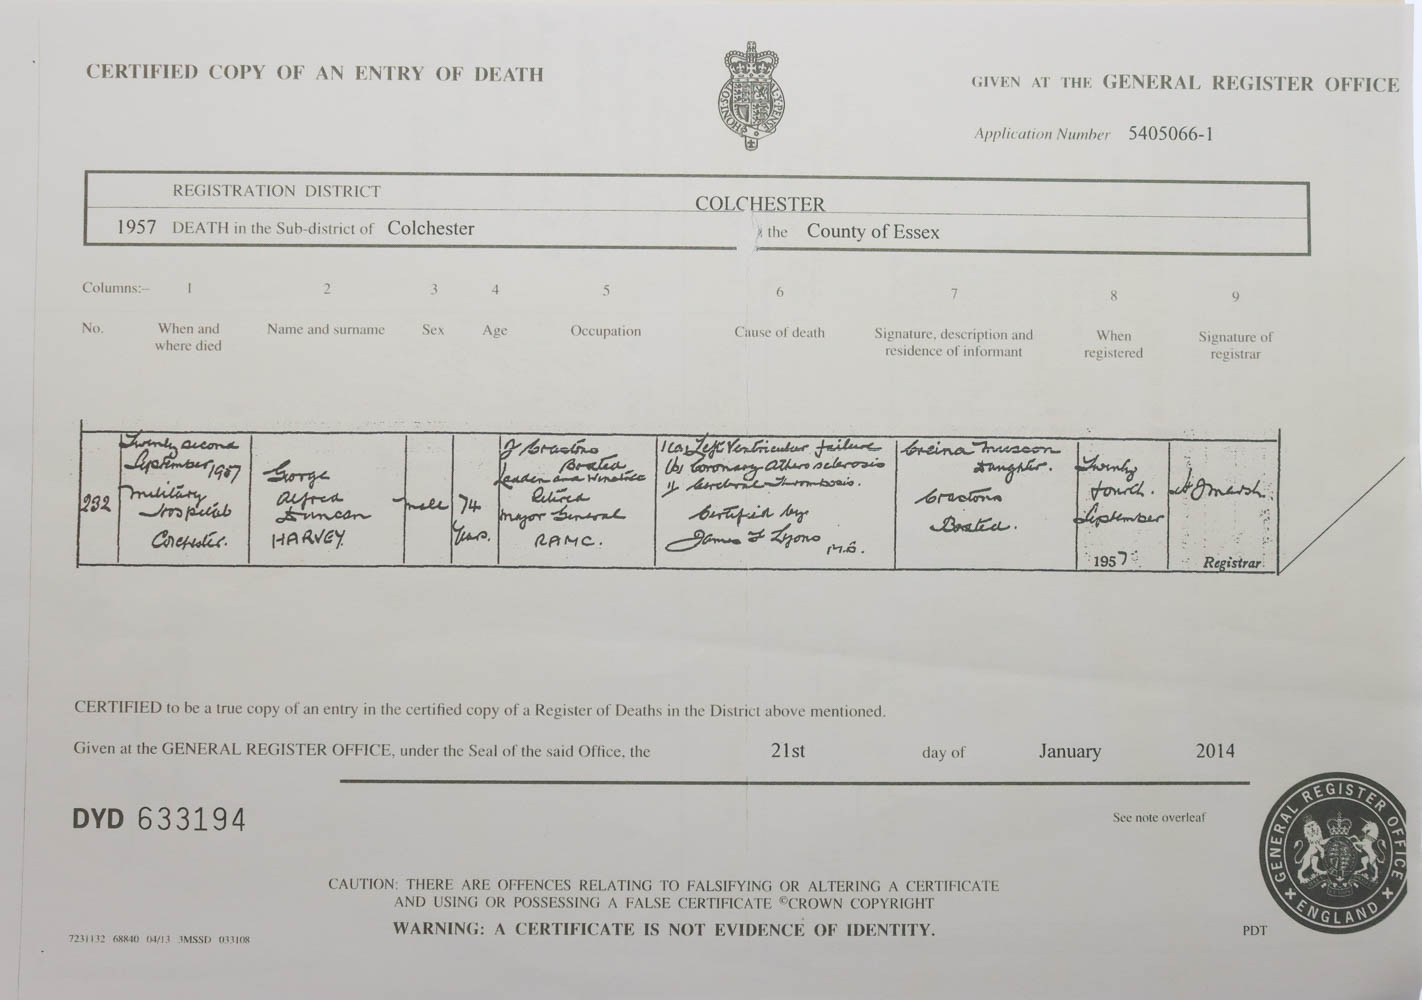 CERTIFIED COPY OF AN ENTRY OF DEATH
GIVEN AT THE GENERAL REGISTER OFFICE
Application Number 5405066-1
REGISTRATION DISTRICT
COLCHESTER
1957 DEATH in the Sub-district of Colchester
the County of Essex
Columns:- 1 2 3 4 5 6 7 8 9
No.
When and
where died
Name and surname
Sex
Age
Occupation
Cause of death
Signature, description and
residence of informant
When
registered
Signature of
registrar
292
Twenty second
September 1957
Military
Hospital
Colchester.
George
Alfred
Duncan
HARVEY
male
74
Years.
Boxted
Retired
Major General
RAMC.
I(a) Left Ventricular failure
(b) Coronary Atherosclerosis
II Cerebral Thrombosis.
Certified by
James F Lyons
M.B.
Musson
Daughter.
Boxted.
Twenty
fourth.
September
1957
Marsh.
Registrar
CERTIFIED to be a true copy of an entry in the certified copy of a Register of Deaths in the District above mentioned.
Given at the GENERAL REGISTER OFFICE, under the Seal of the said Office, the 21st day of January 2014
DYD 633194
See note overleaf
GENERAL REGISTER OFFICE
ENGLAND
CAUTION: THERE ARE OFFENCES RELATING TO FALSIFYING OR ALTERING A CERTIFICATE
AND USING OR POSSESSING A FALSE CERTIFICATE ©CROWN COPYRIGHT
WARNING: A CERTIFICATE IS NOT EVIDENCE OF IDENTITY.
7231132 68840 04/13 3MSSD 033108
PDT